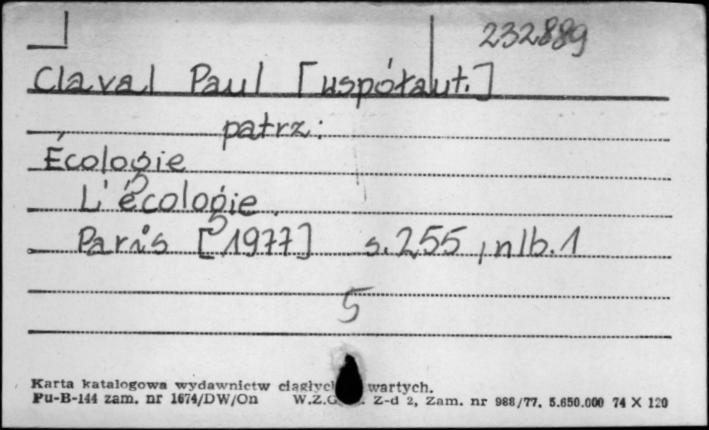 232889
Claval Paul [współaut.]
patrz:
Écologie
L'écologie.
Paris [1977] s. 255, nlb. 1
5
Karta katalogowa wydawnictw wartych.
Pu-B-144 zam. nr 1674/DW/On Z-d 2, Zam. nr 988/77. 5.650.000 74 X 120